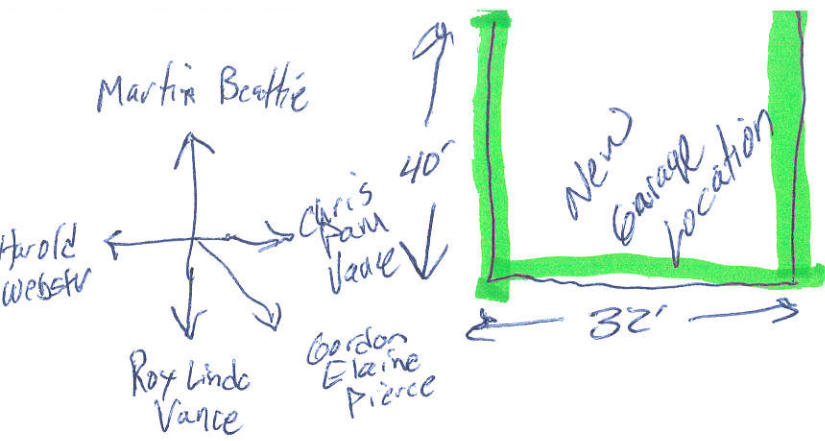 Martin Beattie
Harold
Webstr
Chris
Pam
Vance
Roy Linda
Vance
Gordon
Elaine
Pierce
40'
New
Garage
Location
32'